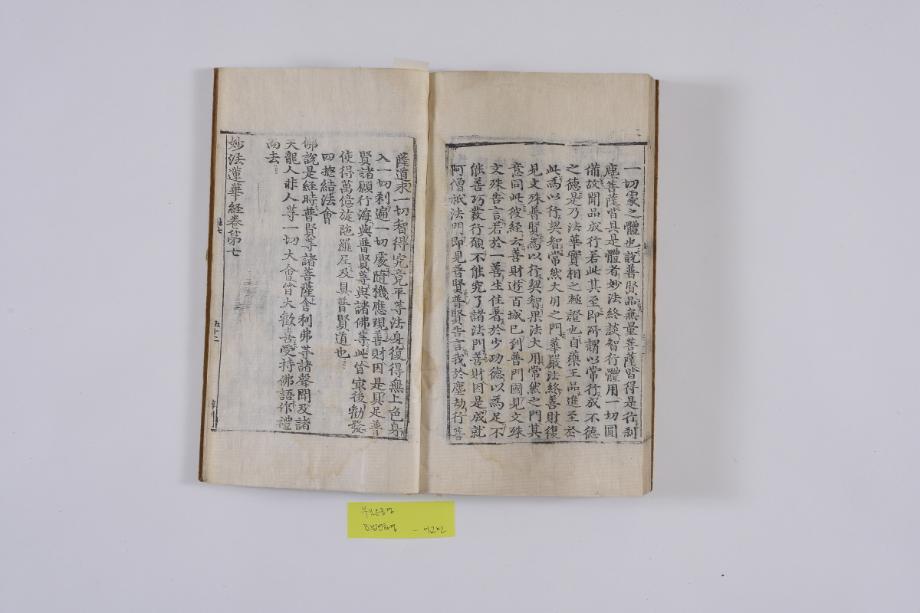 一切衆之體也說普賢品無量菩薩皆得是行刹
塵菩薩皆具是體者妙法終談智行體用一切圓
備故聞品成行若此其至即所謂以常行成不德
之德是乃法華實相之極證也自藥王品進至於
此爲以行契智常然大用之門華嚴法終善財復
見文殊普賢爲以行契智果法大用常然之門其
意同此彼經云善財遊百城已到普門國見文殊
文殊告言若於一善生住著於少功德以爲足不
能善巧發行願不能究了諸法門善財因是成就
阿僧祇法門即見普賢普賢告言我於塵劫行菩
薩道求一切智得究竟平等法身復得無上色身
入一切刹遍一切處隨機應現善財因是具足普
賢諸願行海與普賢等與諸佛等此皆最後勸發
使得萬億旋陁羅尼及具普賢道也
四摠結法會
佛說是經時普賢等諸菩薩舍利佛等諸聲聞及諸
天龍人非人等一切大會皆大歡喜受持佛語作禮
而去
妙法蓮華經卷第七